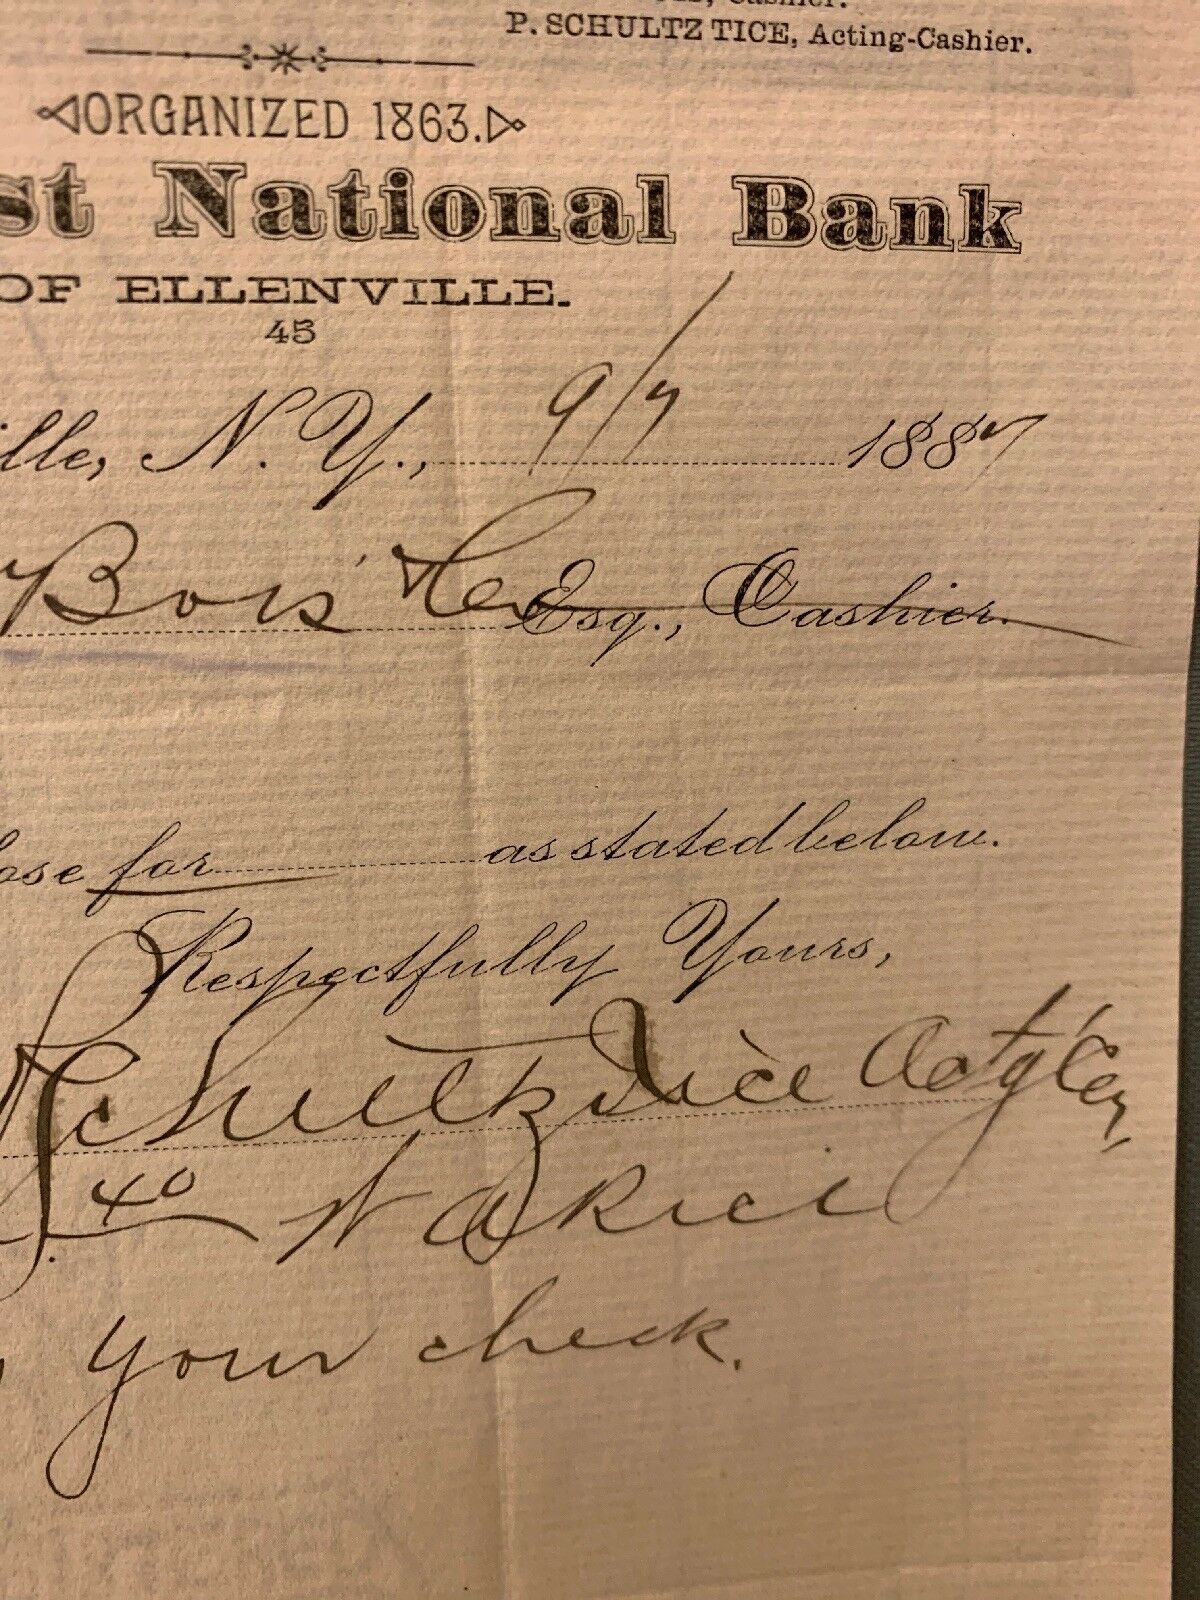 Cashier.
P. SCHULTZ TICE, Acting-Cashier.
ORGANIZED 1863.
st National Bank
OF ELLENVILLE.
45
ille, N. Y., 9/7 1887
Bois Esq., Cashier.
ose for as stated below.
Respectfully Yours,
Schultz Tice
40
your check.